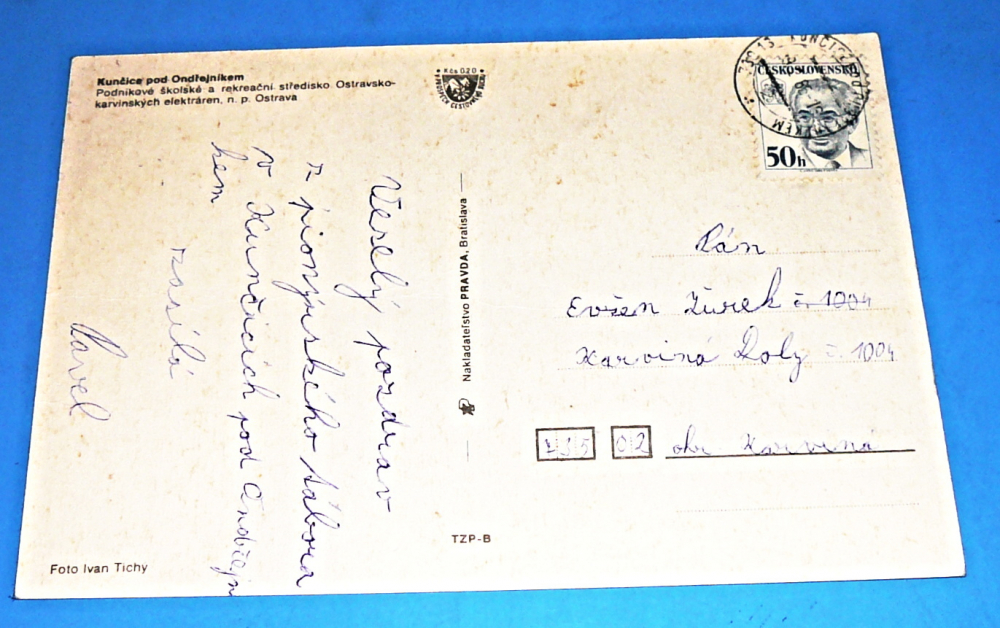 Kunčice pod Ondřejníkem
Podnikové školské a rekreační středisko Ostravsko-
karvinských elektráren, n. p. Ostrava
Kčs 0.20
ČESKOSLOVENSKO
50h
Veselý pozdrav
z pionýrského tábora
v Kunčicích pod Ondřejní
kem
zasílá
Pavel
Nakladateľstvo PRAVDA, Bratislava
TZP-B
Foto Ivan Tichy
Pán
Evžen Žurek č. 1004
Karviná Doly č. 1004
735 02 okr Karviná